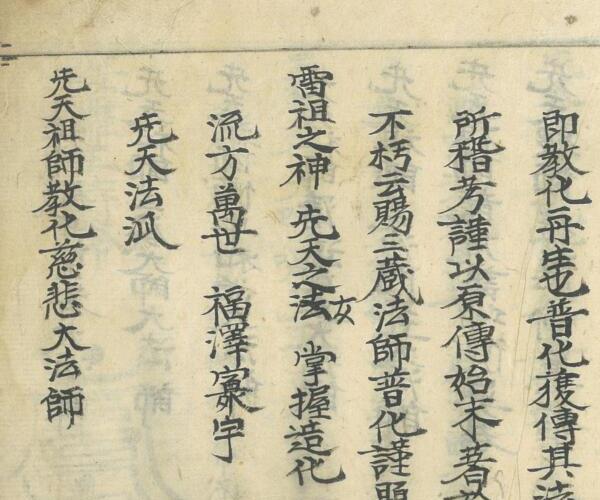 即教化再生也普化獲傳其法
所稽考謹以原傳始末著
不朽云賜三藏法師普化謹
雷祖之神 先天之法 女 掌握造化
流方萬世 福澤寰宇
先天法派
先天祖師教化慈悲大法師